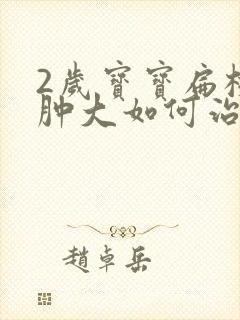 2歲寶寶扁
肿大如何治
趙卓岳